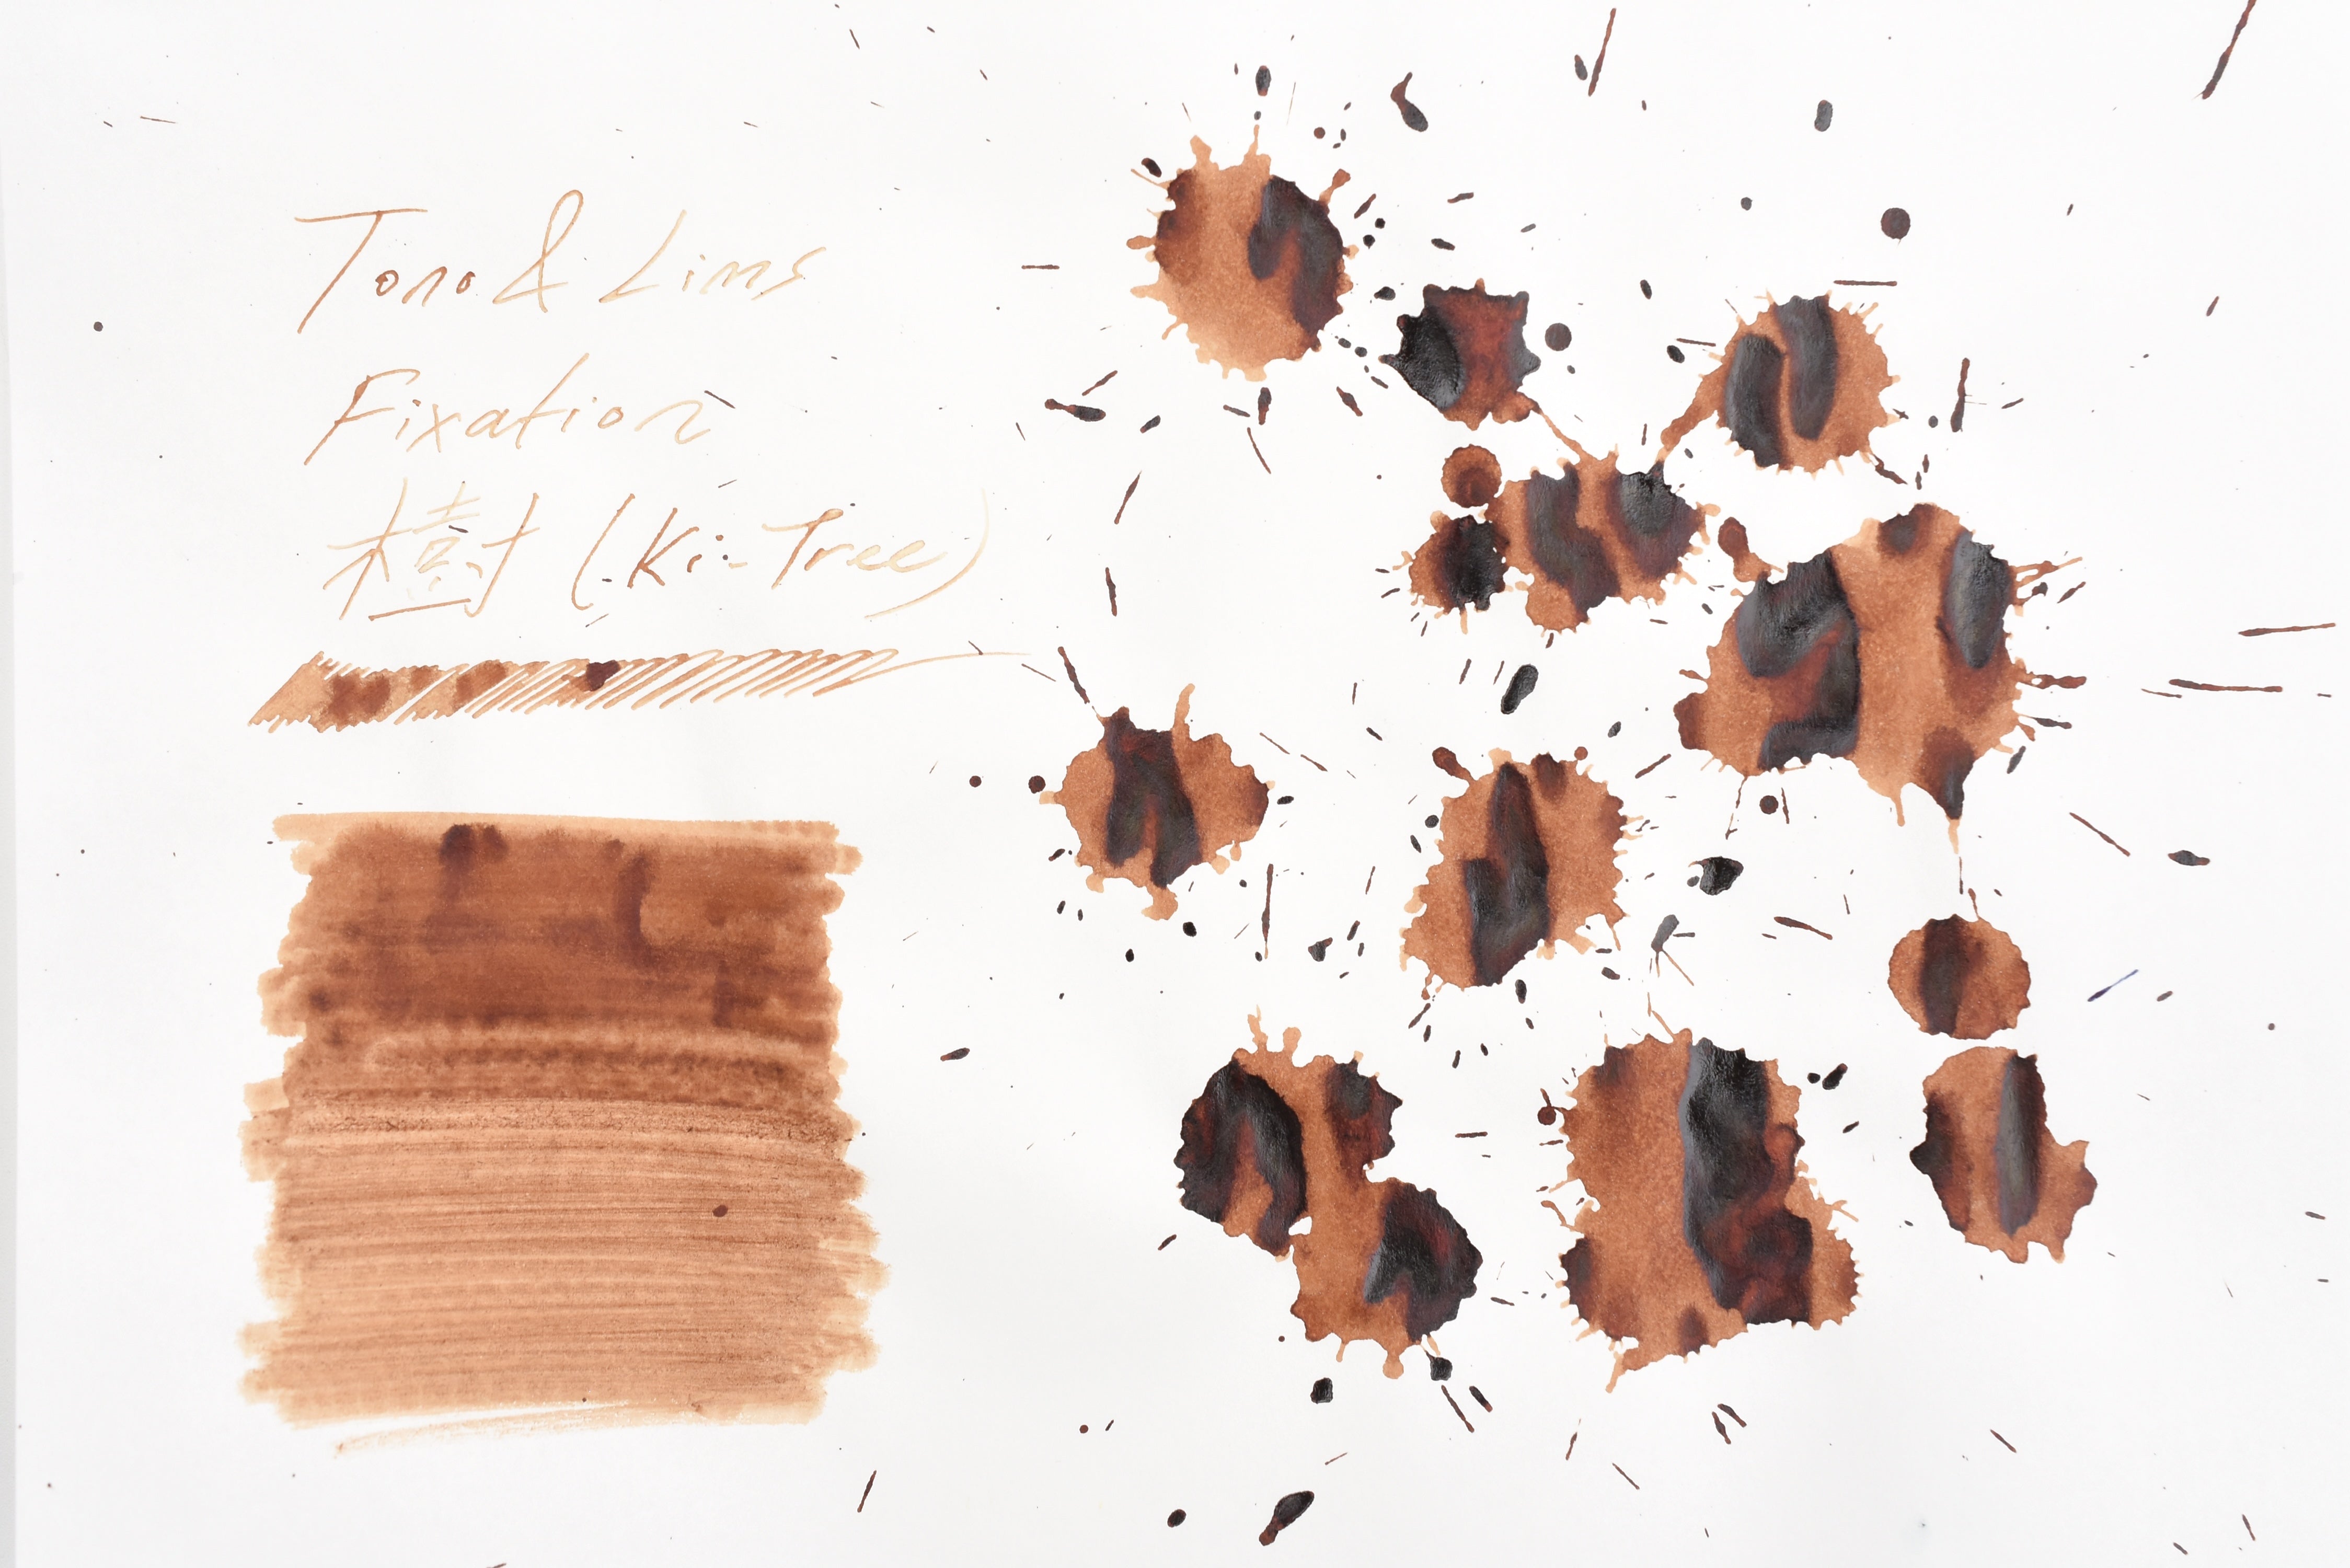 Tono & Lims
Fixation
樹 (Ki-Tree)